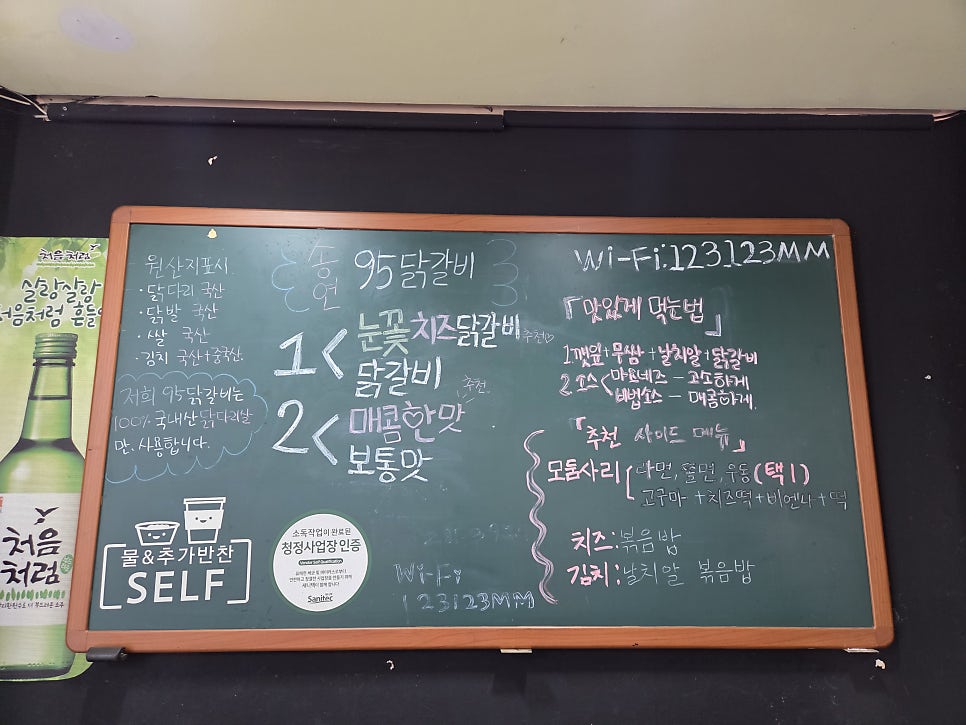 처음처럼
살랑살랑
처음처럼 흔들
처음
처럼
원산지표시
· 닭다리 국산
· 닭발 국산
· 쌀 국산
· 김치 국산+중국산.
저희 95닭갈비는
100% 국내산 닭다리살
만, 사용합니다.
물&추가반찬
SELF
송연 95닭갈비
1 < 눈꽃치즈닭갈비 추천♡
닭갈비
2 < 매콤한맛 추천.
보통맛
소독작업이 완료된
청정사업장 인증
Sanitec
Wi-Fi
123123MM
Wi-Fi:123123MM
「맛있게 먹는법」
1.깻잎+무쌈+날치알+닭갈비
2.소스< 마요네즈 - 고소하게
비법소스 - 매콤하게.
「추천 사이드 메뉴」
모둠사리 라면, 쫄면, 우동 (택1)
고구마+치즈떡+비엔나+떡
치즈:볶음밥
김치:날치알 볶음밥